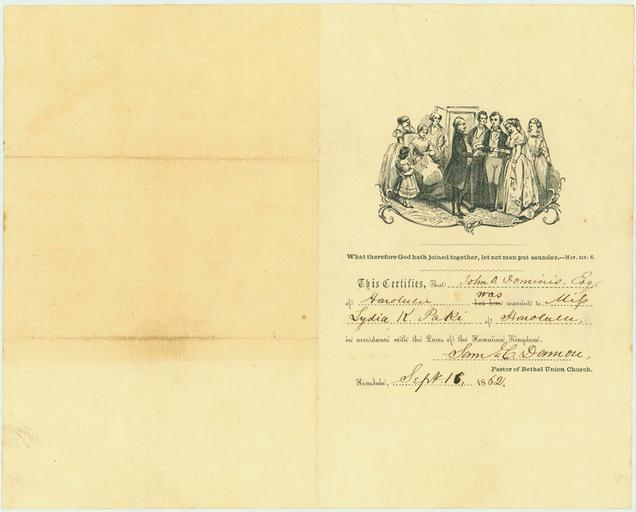 What therefore God hath joined together, let not man put asunder.—MAT. XIX: 6.
This Certifies, That John O. Dominis. Esq.
of Honolulu was married to Miss
Lydia K. Paki of Honolulu,
in accordance with the Laws of the Hawaiian Kingdom.
Sam'l C. Damon,
Pastor of Bethel Union Church.
Honolulu, Sept. 16, 1862.